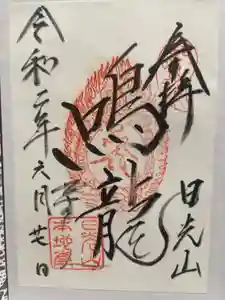 奉拝
日光山
鳴龍
令和二年六月廿七日